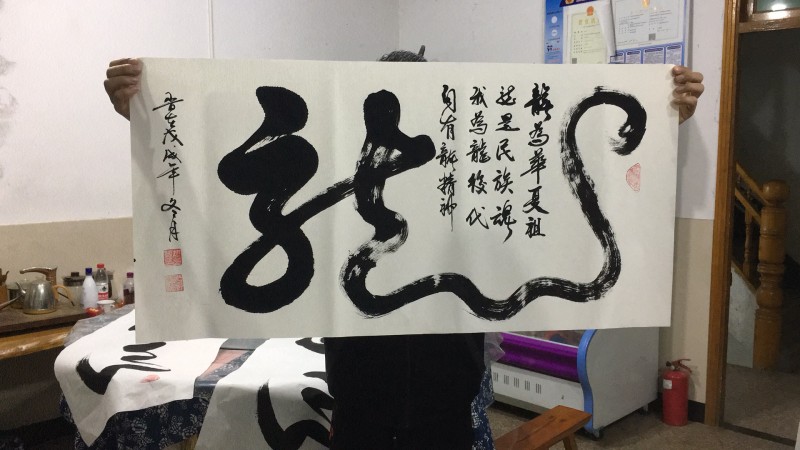 龍為華夏祖
龍是民族魂
我為龍後代
自有龍精神
龙
戊戌年冬月